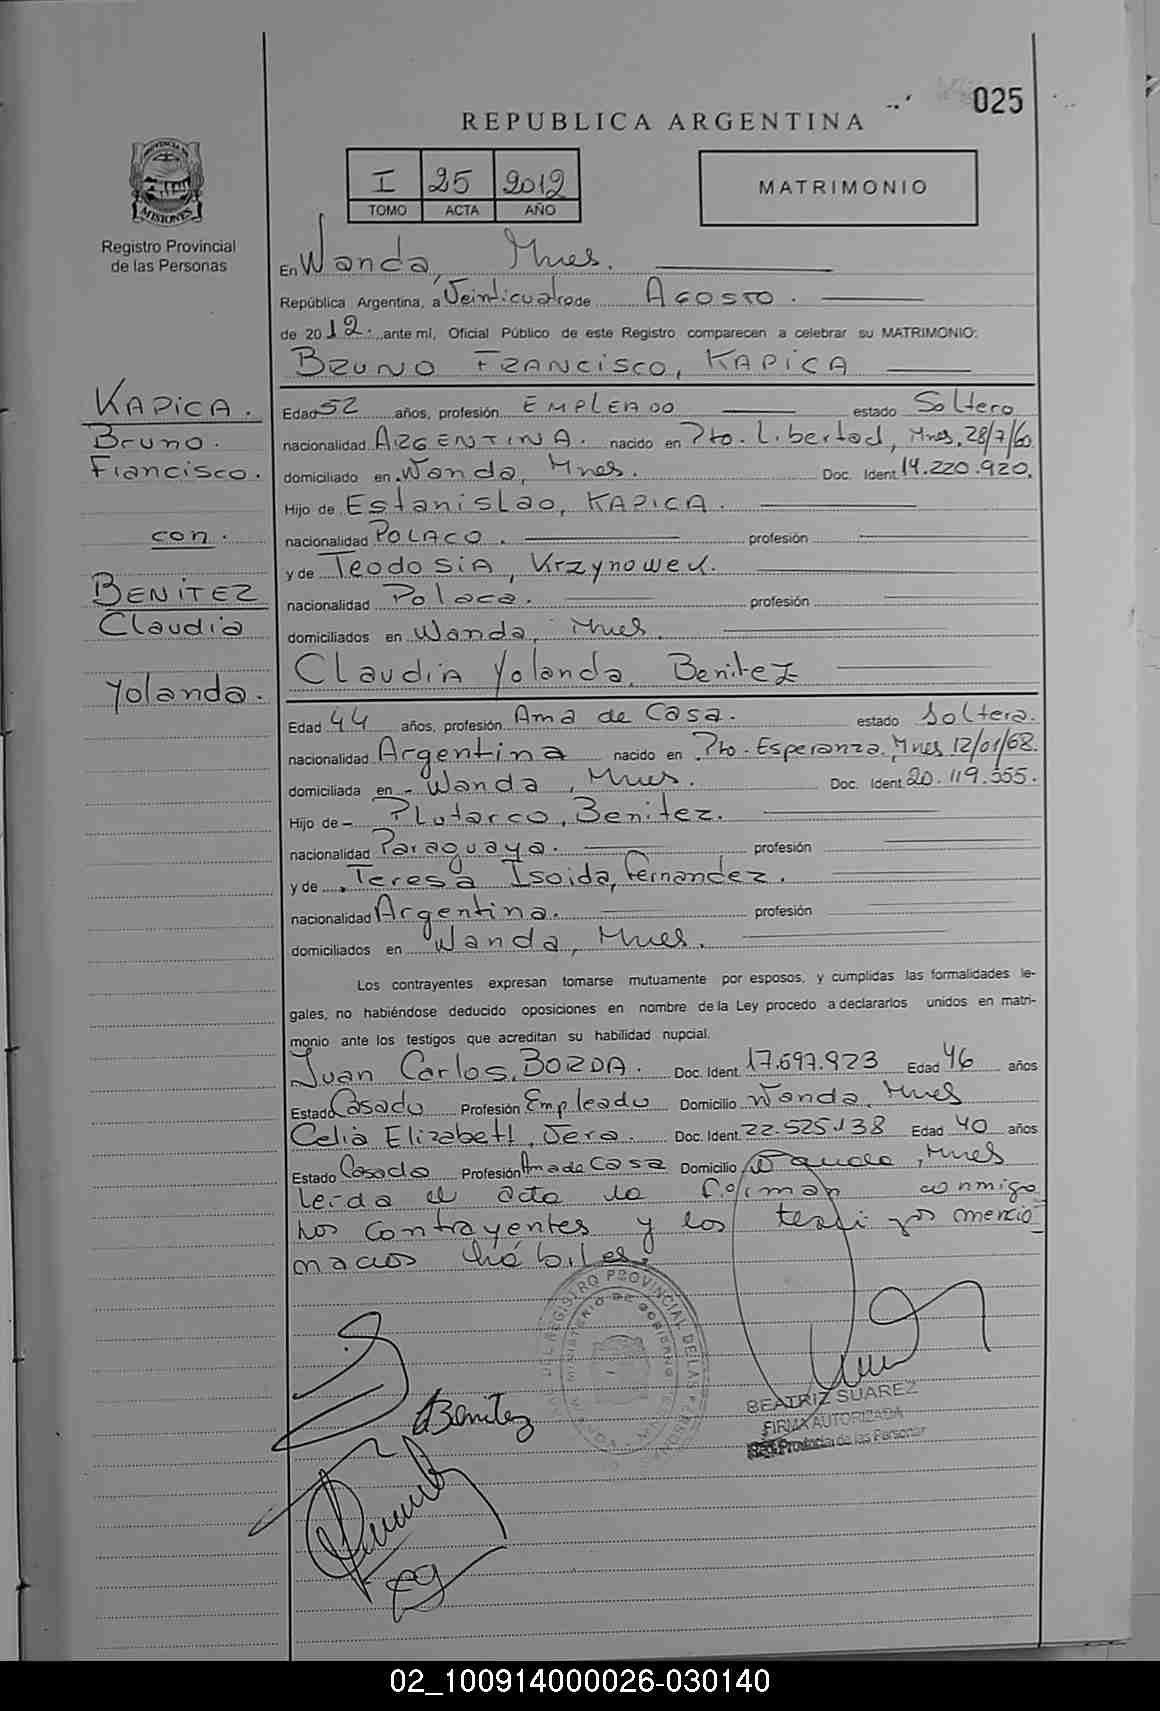 025
REPUBLICA ARGENTINA
I 25 2012
TOMO ACTA AÑO
MATRIMONIO
PROVINCIA DE
MISIONES
Registro Provincial
de las Personas
En Wanda, Mnes.
República Argentina, a Veinticuatro de Agosto.
de 2012. ante mi, Oficial Público de este Registro comparecen a celebrar su MATRIMONIO:
BRUNO FRANCISCO, KAPICA
KAPICA.
Bruno.
Francisco.
con.
BENITEZ
Claudia
Yolanda.
Edad 52 años, profesión EMPLEADO estado Soltero
nacionalidad ARGENTINA. nacido en Pto. Libertad, Mnes, 28/7/60.
domiciliado en Wanda, Mnes. Doc. Ident. 14.220.920.
Hijo de Estanislao, KAPICA.
nacionalidad POLACO. profesión
y de TEODOSIA, Krzynowek.
nacionalidad Polaca. profesión
domiciliados en Wanda, Mnes.
CLAUDIA Yolanda, Benitez
Edad 44 años, profesión Ama de Casa. estado Soltera.
nacionalidad Argentina nacido en Pto. Esperanza, Mnes 12/01/68.
domiciliada en Wanda, Mnes. Doc. Ident. 20.119.555.
Hijo de Plutarco, Benitez.
nacionalidad Paraguaya. profesión
y de Teresa Isoida, Fernandez.
nacionalidad Argentina. profesión
domiciliados en Wanda, Mnes.
Los contrayentes expresan tomarse mutuamente por esposos, y cumplidas las formalidades le-
gales, no habiéndose deducido oposiciones en nombre de la Ley procedo a declararlos unidos en matri-
monio ante los testigos que acreditan su habilidad nupcial.
Juan Carlos, BORDA. Doc. Ident. 17.697.923 Edad 46 años
Estado Casado Profesión Empleado Domicilio Wanda, Mnes
Celia Elizabeth, Vera. Doc. Ident. 22.525.138 Edad 40 años
Estado Casada Profesión Ama de Casa Domicilio Wanda, Mnes
leida el acta la firman conmigo
los contrayentes y los testigos mencio-
nados hábiles.
REGISTRO PROVINCIAL DE LAS PERSONAS
MINISTERIO DE GOBIERNO
Benitez
BEATRIZ SUAREZ
FIRMA AUTORIZADA
Reg. Provincial de las Personas
02_100914000026-030140